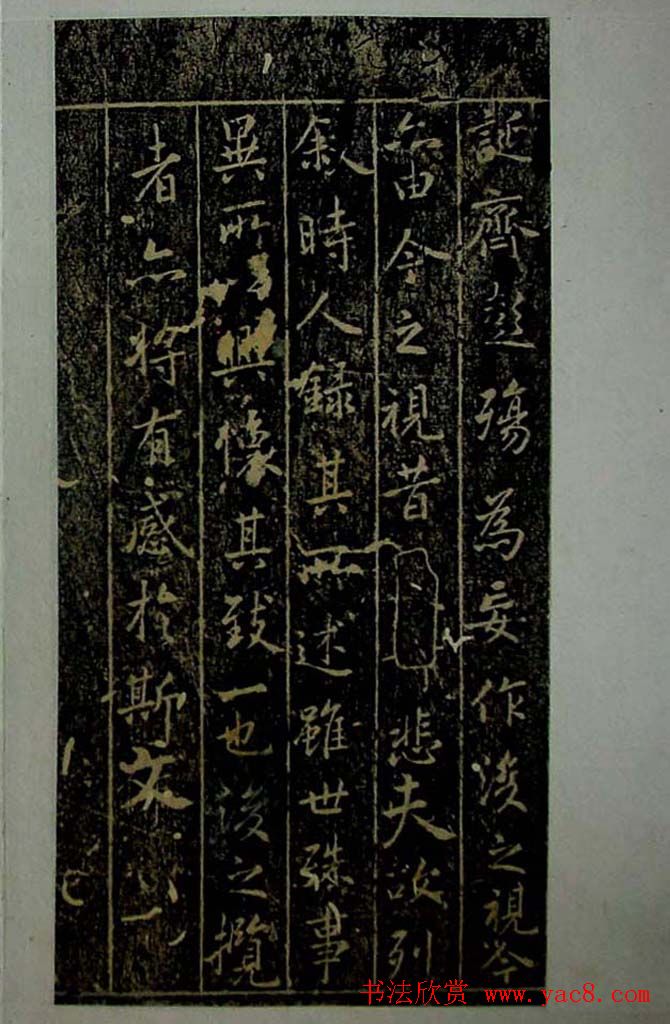 誕齊彭殤為妄作後之視今
亦由今之視昔悲夫故列
敘時人錄其所述雖世殊事
異所以興懷其致一也後之攬
者亦將有感於斯文
书法欣赏 www.yac8.com